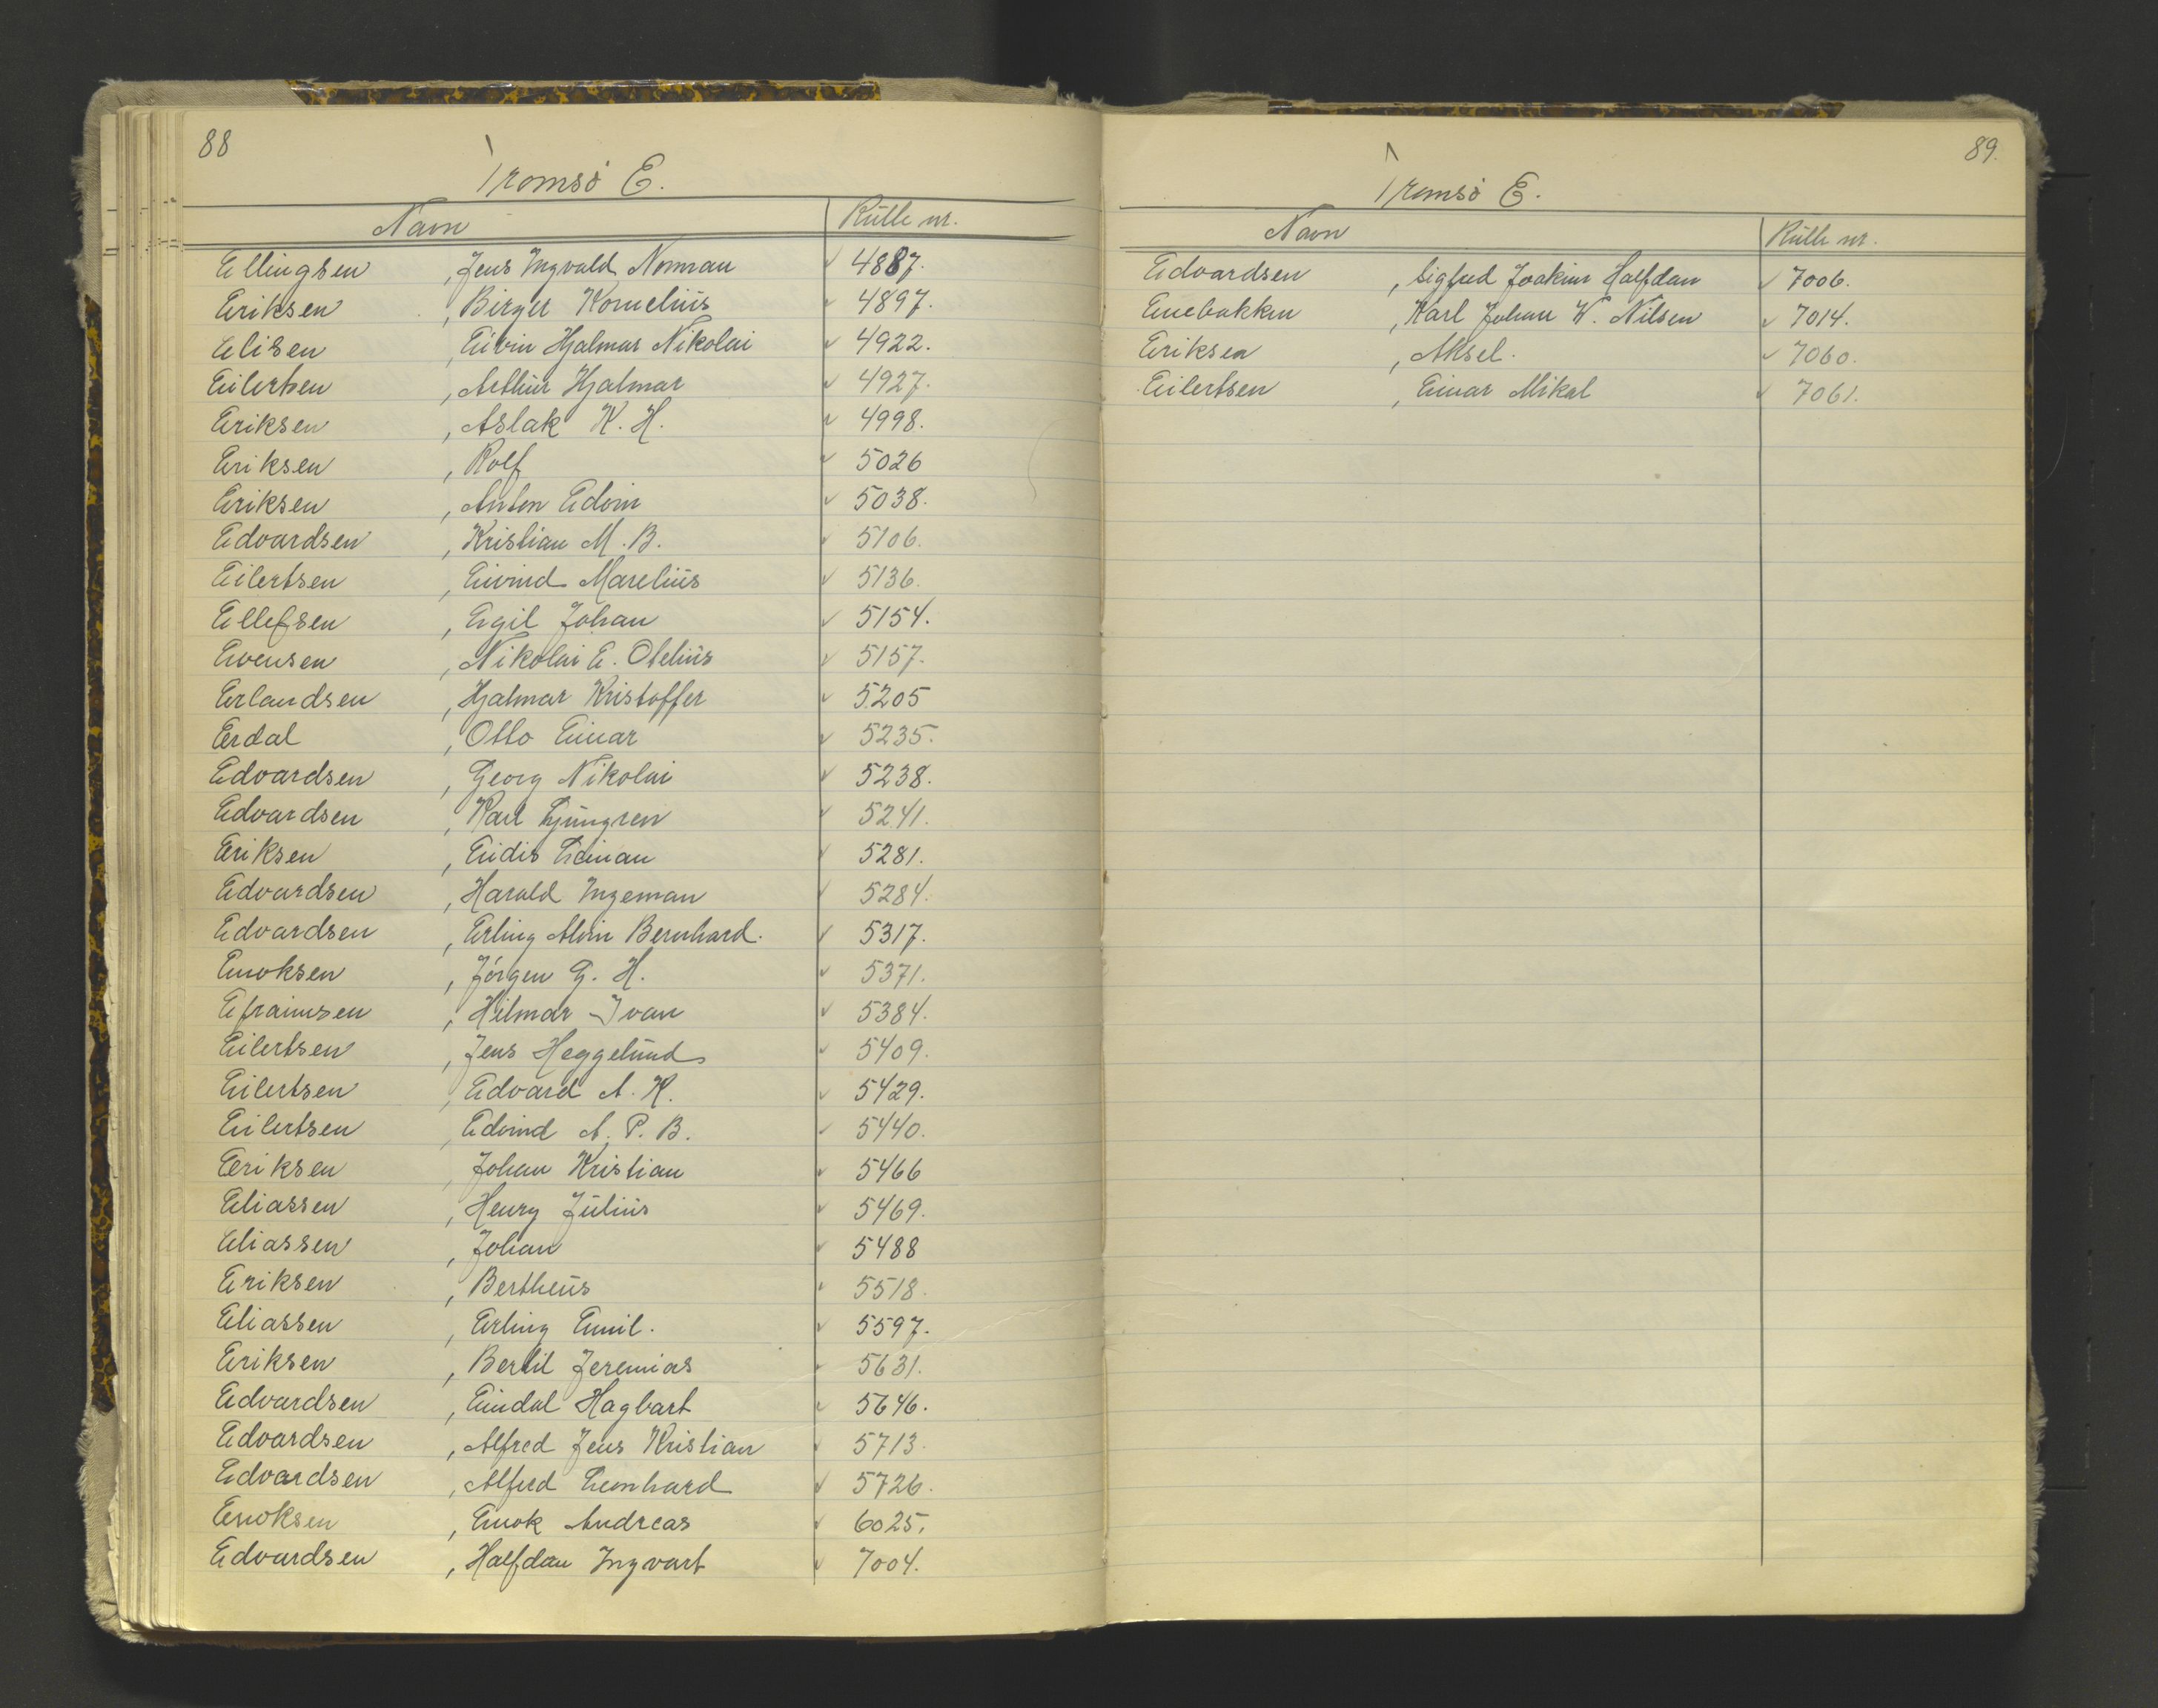 88
Tromsö E.
Navn Rulle nr.
Ellingsen , Jens Ingvald Norman ✓ 4887.
Eriksen , Birger Kornelius ✓ 4897.
Elisen , Eivin Hjalmar Nikolai ✓ 4922.
Eilertsen , Arthur Hjalmar ✓ 4927.
Eriksen , Aslak K. H. ✓ 4998.
Eriksen , Rolf ✓ 5026
Eriksen , Anton Edvin ✓ 5038.
Edvardsen , Kristian M. B. ✓ 5106.
Eilertsen , Eivind Marelius ✓ 5136.
Ellefsen , Egil Johan ✓ 5154.
Evensen , Nikolai E. Otelius ✓ 5157.
Erlandsen , Hjalmar Kristoffer ✓ 5205
Erdal , Otto Einar ✓ 5235.
Edvardsen , Georg Nikolai ✓ 5238.
Edvardsen , Karl Ljungren ✓ 5241.
Eriksen , ✓ 5281.
Edvardsen , Harald Ingeman ✓ 5284.
Edvardsen , Erling Alvin Bernhard. ✓ 5317.
Enoksen , Jörgen G. H. ✓ 5371.
Efraimsen , Hilmar Ivan ✓ 5384.
Eilertsen , Jens Heggelund ✓ 5409.
Eilertsen , Edvard A. K. ✓ 5429.
Eilertsen , Edvind A. P. B. ✓ 5440.
Eriksen , Johan Kristian ✓ 5466
Eliassen , Henry Julius ✓ 5469.
Eliassen , Johan ✓ 5488
Eriksen , Bertheus ✓ 5518.
Eliassen , Erling Emil. ✓ 5597.
Eriksen , Bertil Jeremias ✓ 5631.
Edvardsen , Eindal Hagbart ✓ 5646.
Edvardsen , Alfred Jens Kristian ✓ 5713.
Edvardsen , Alfred Leonhard ✓ 5726.
Enoksen , Enok Andreas ✓ 6025.
Edvardsen , Halfdan Ingvart ✓ 7004.
89.
Tromsö E.
Navn Rulle nr.
Edvardsen , Sigfred Joakim Halfdan ✓ 7006.
Enebakken , Karl Johan W. Nilsen ✓ 7014.
Eriksen , Aksel. ✓ 7060.
Eilertsen , Einar Mikal ✓ 7061.